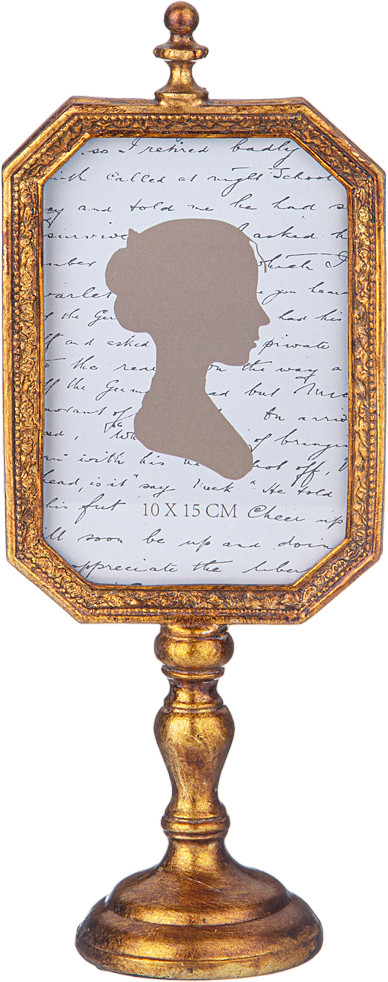 so I retired badly
with called at night School
ay and told me he had s
survive asked h
mber which I
varlet you have
of the Gu had his
ff and asked private
to the rea on the way a
ff the Gum ad but
morant of In arriv
sed, of bringin
with his hot off,
head, is it" say "luck" He told
his fut 10 X 15 CM Cheer up
ll soon be up and doin
appreciate the liber